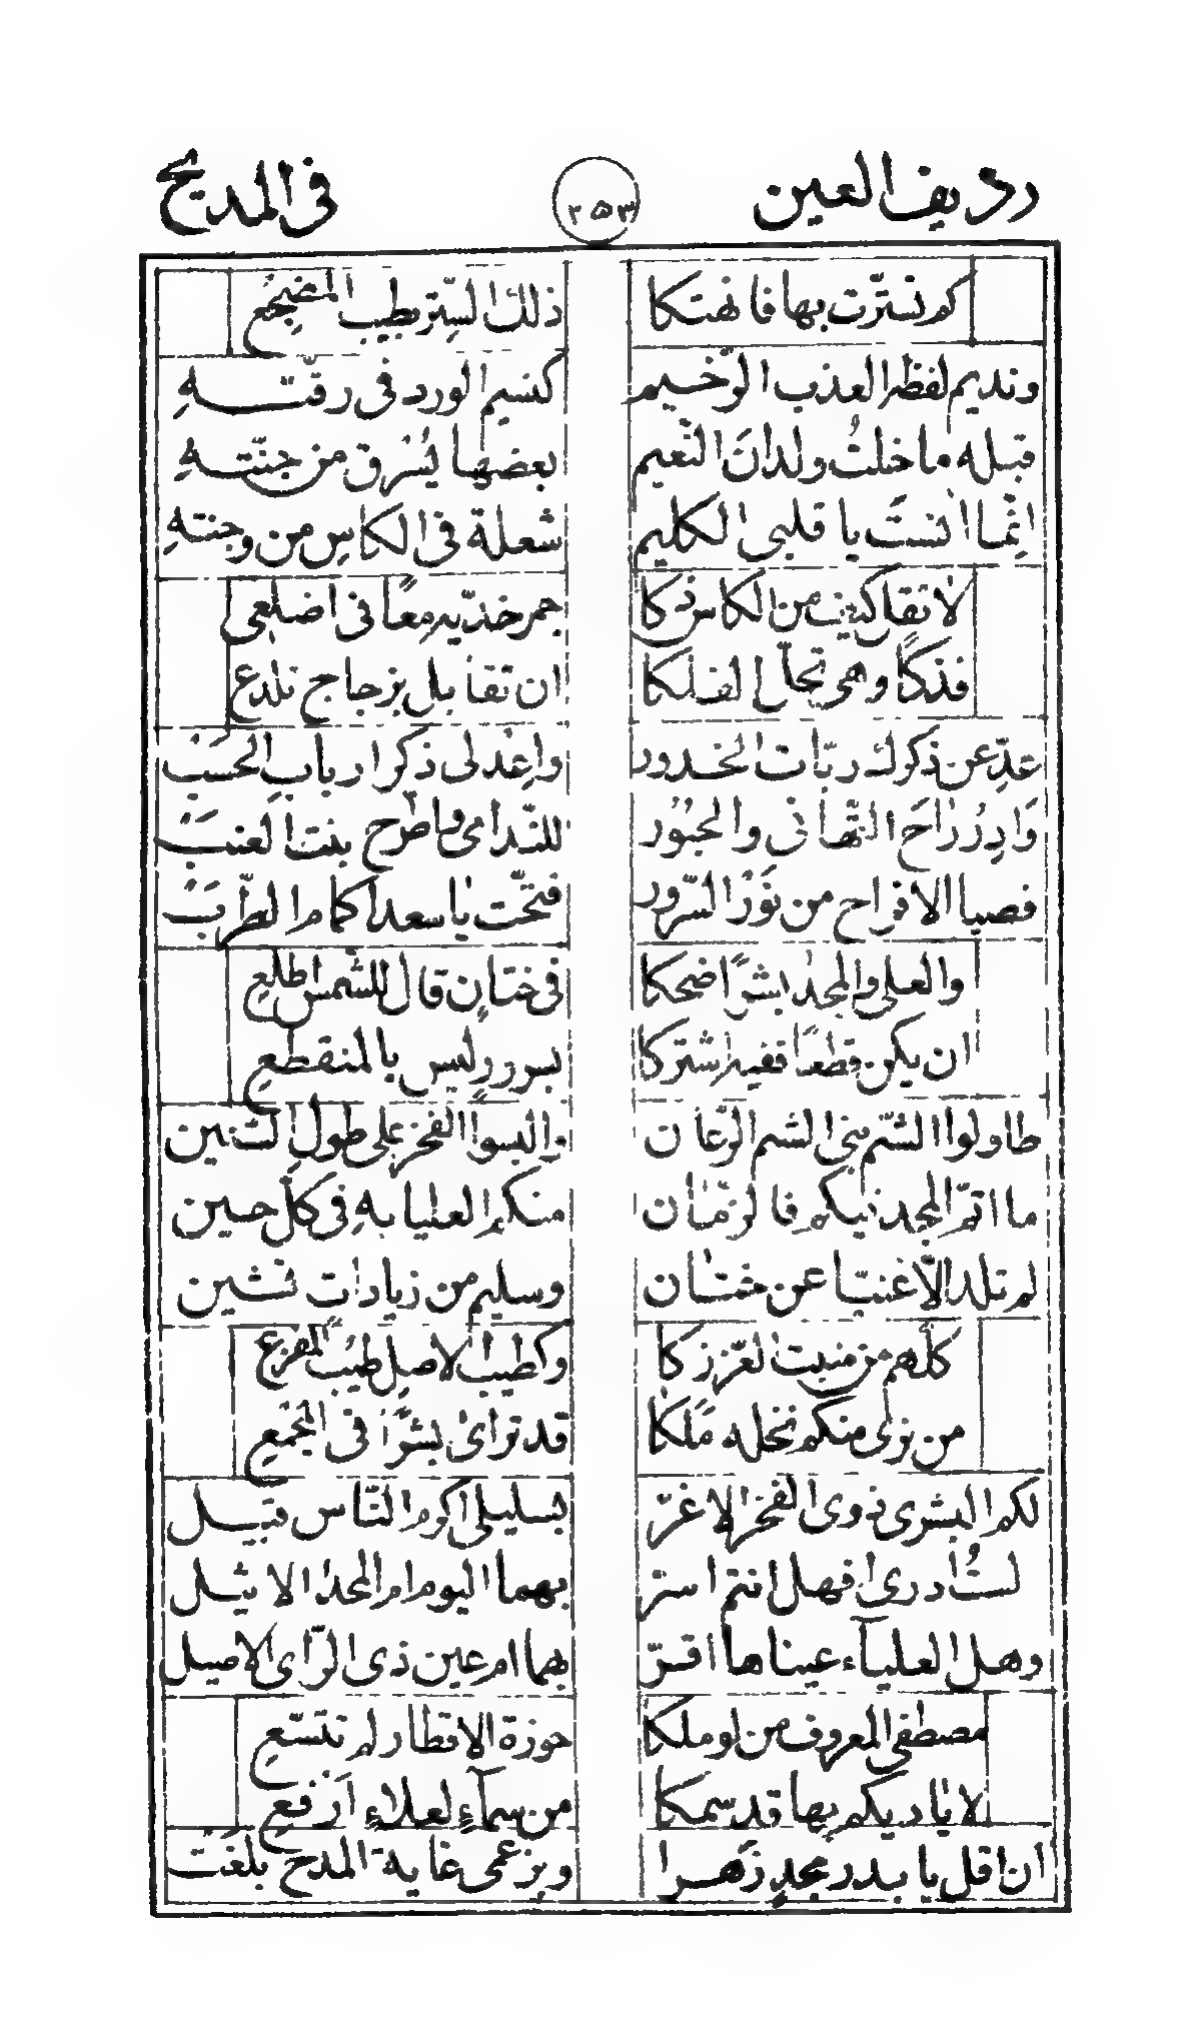 رديف العين ٢٥٣ في المديح
كم تسترت بها فانهتكا ذلك الستر بطيب المضجع
ونديم لفظه العذب الرّخيم كنسيم الورد في رقّته
قبله ما خلتُ ولدانَ النّعيم بعضها يُسْرق من جنّتهِ
انّما انستَ يا قلبي الكليم شعلة في الكاسِ من وجنتهِ
لا تقل كيف من الكاس ذكا جمر خدّيهِ معًا في اضلعي
فذكًا وهي تحلّ الفلكا ان تقابل بزجاج تلدع
عدّ عن ذكرك ربّات الخدور واعِدْ لي ذكر ارباب الحَسَبْ
وَادِرْ رَاحَ التّهاني والحبُور للنّدامى واطّرح بنت العنَبْ
فصبا الافراح من نَوْر السّرور فتحّت يا سعد اكمام الطّرَبْ
والعلى والمجد بشرًا ضحكا في ختانٍ قال للشّمس اطلعي
ان يكن قطعًا ففيه اشتركا بسرورٍ ليس بالمنقطعِ
طاولوا الشّم بني الشم الرّعان والبسوا الفخر على طول السّنين
ما اتمّ المجد فيكم فالزّمان منكم العليا بهِ في كلّ حين
لم تلد الّا غنيّا عن ختان وسليم من زيادات تشين
كلّهم من منبت العزّ زكا وكطيب الاصل طيب المفرعِ
من نرى منكم نخله مَلَكا قد تراىٰ بشَرًا في المجمعِ
لكم البشرى ذوي الفخر الاغرّ بسليلي اكرم النّاس قبيل
لستُ ادري افهل انتم اسرّ بهما اليوم ام المجد الاثيل
وهل العلياء عيناها اقرّ بهما ام عين ذي الرّاي الاصيل
مصطفى المعروف من لو ملكا حوزة الاقطار لم تتسّعِ
لاياديكم بها قد سمكا من سماءٍ لعلاءٍ ارفعِ
ان اقل يا بدر مجدٍ زهرا وبزعمي غاية المدح بلغت